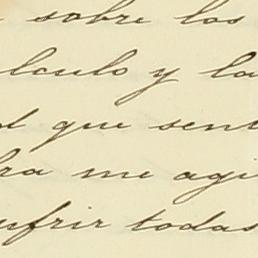 sobre los
lculo y la
d que sent
bra me agi
ufrir todas